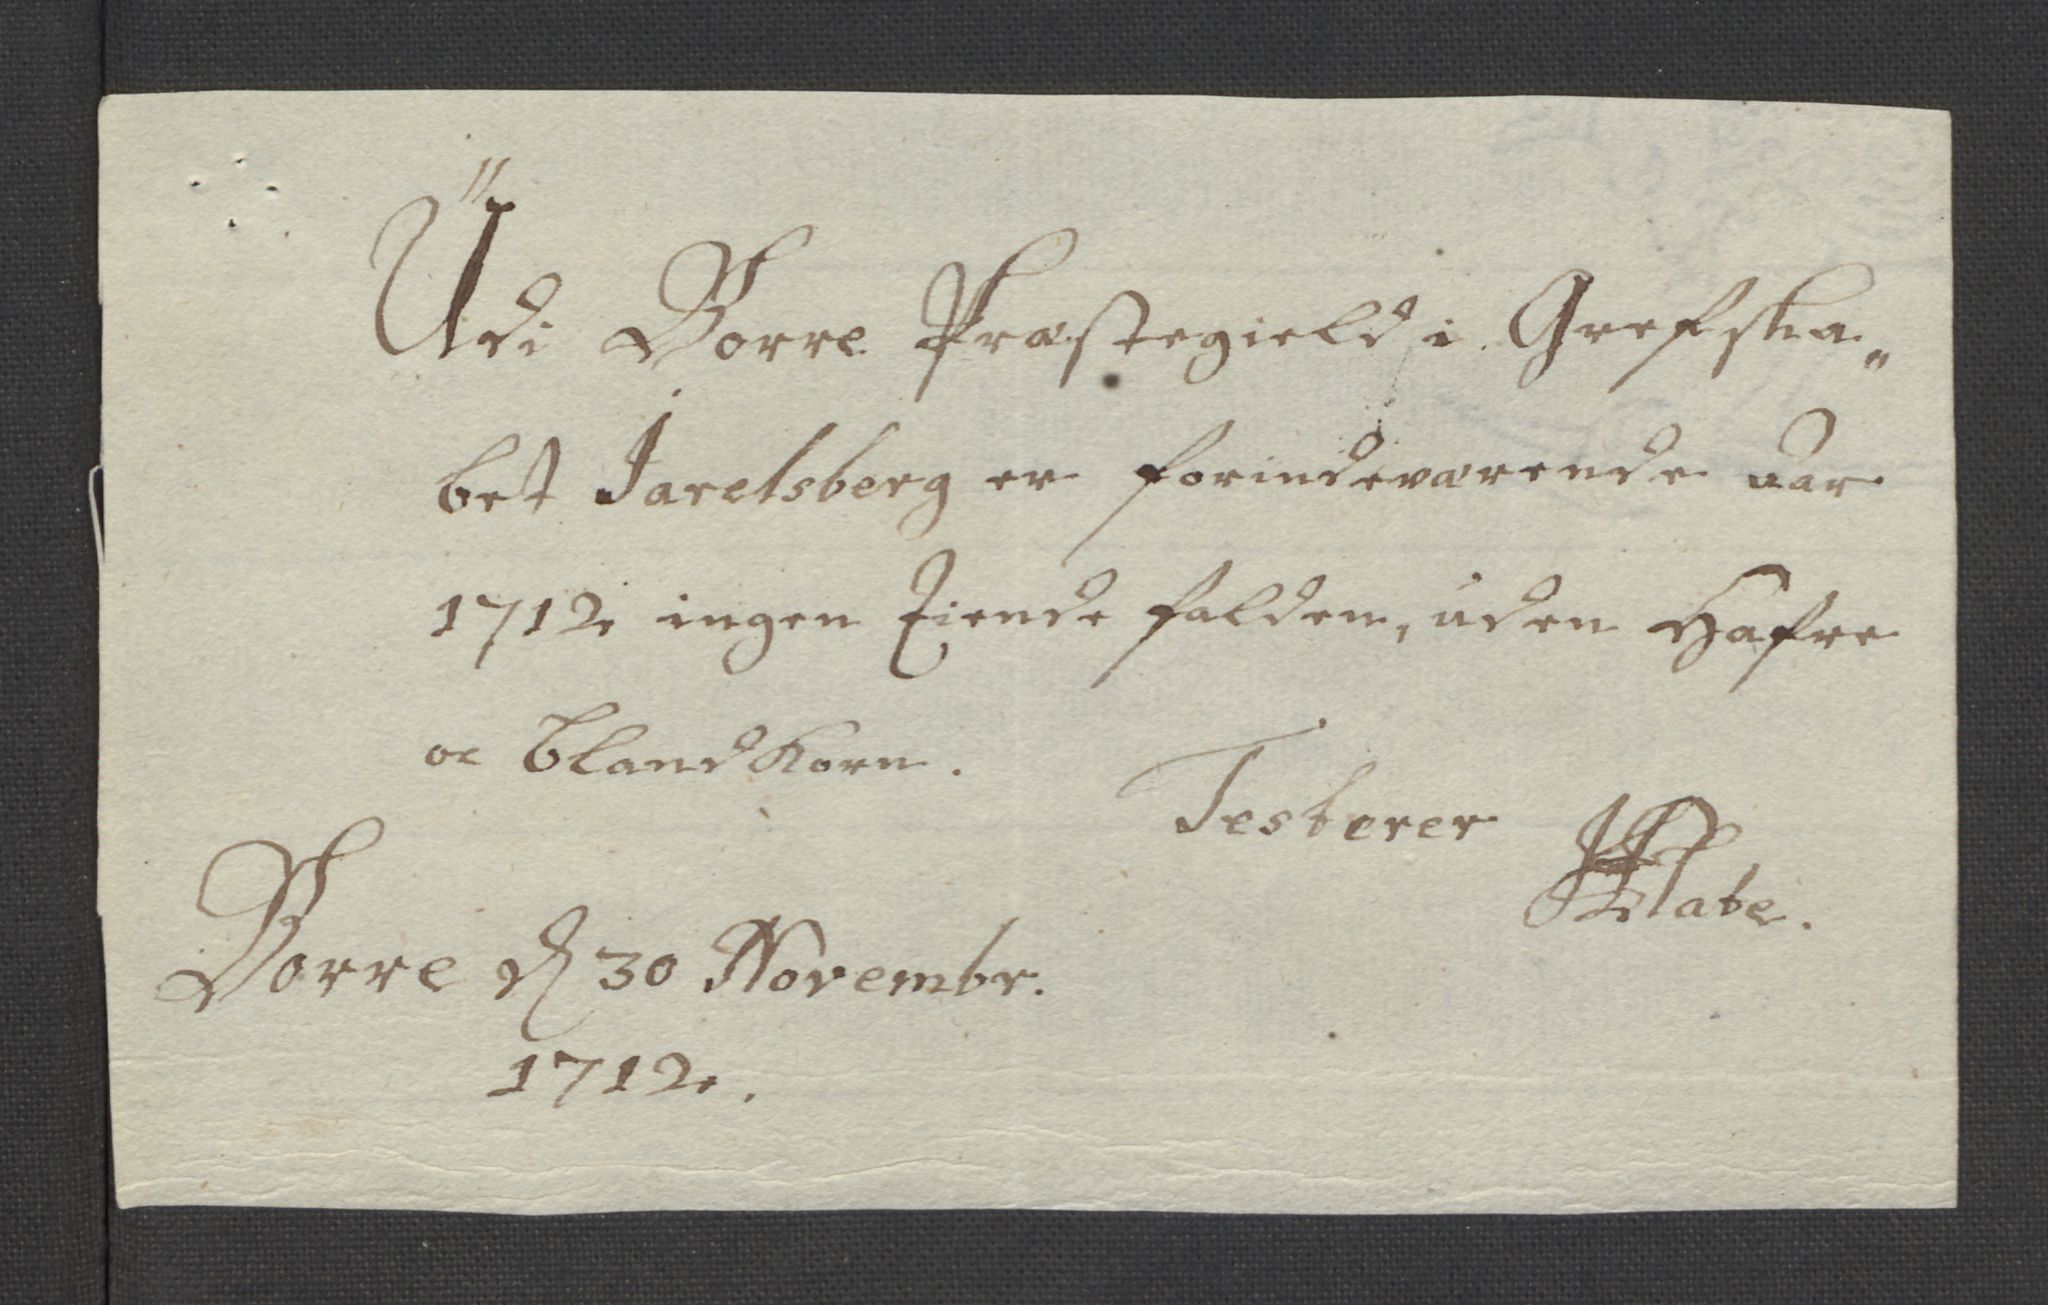 Udi Borre Præstegield i Grefska„
bet Jarelsberg er forindeværende aar
1712 ingen Tiende falden, uden Hafre
oc Blandkorn.
Testerer
Borre d 30 Novembr.
1712.